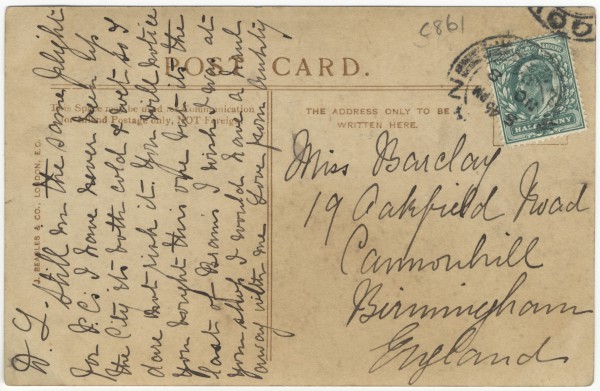 C861
POST CARD.
This Space may be used for Communication
for Inland Postage only, NOT Foreign
THE ADDRESS ONLY TO BE
WRITTEN HERE.
J. BEAGLES & CO., LONDON, E.C.
HALF PENNY
45 PM
D. L. Still in the same plight
for P.Cs I have never been up
the City its both cold & wet so I
dare not risk it. You will notice
you bought this one but it is the
last of Beams I wish I was at
your show I would have a
away with me Love from Aunty
Miss Barclay
19 Oakfield Road
Cannonhill
Birmingham
England